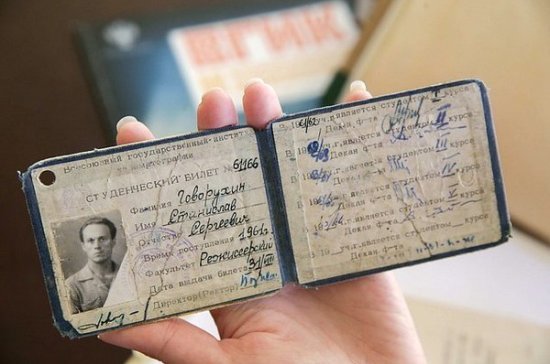 ВГИК
Всесоюзный государственный инстит
кинематографии
СТУДЕНЧЕСКИЙ БИЛЕТ № 61166
Фамилия Говорухин
Имя Станислав
Отчество Сергеевич
Время поступления 1961г.
Факультет Режиссерский
Дата выдачи билета
Директор(Ректор)
В 1961/62 уч.г.является студентом I курса
Декан ф-та
В 196 уч.г.является студентом II курса
Декан ф-та
В 196 уч.г.является студентом III курса
Декан ф-та
В 196 уч.г.является студентом IV курса
Декан ф-та
В 196 уч.г.является студентом курса
Декан ф-та